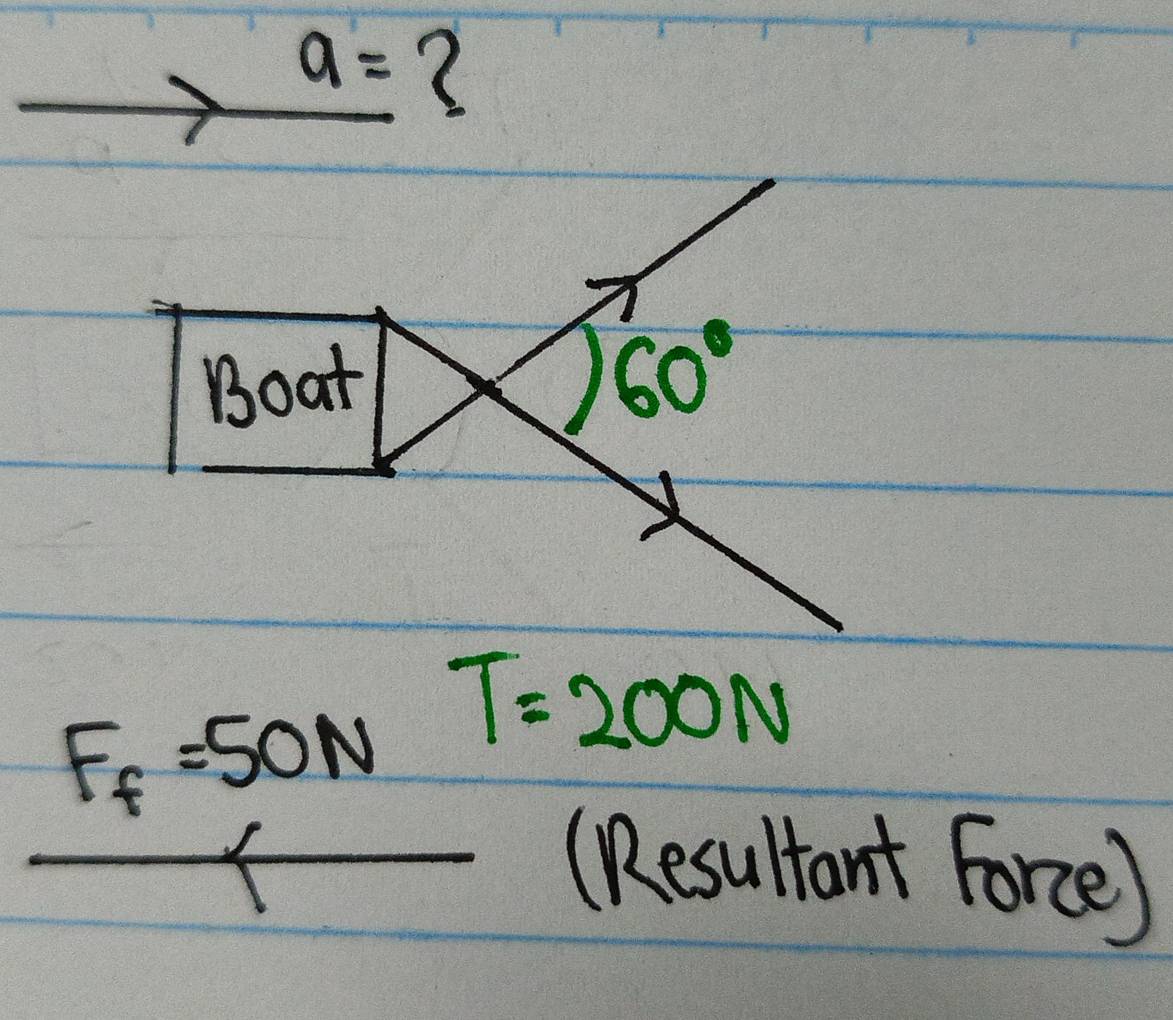 a = ?
60°
Boat
T = 200N
F_f = 50N
(Resultant Force)